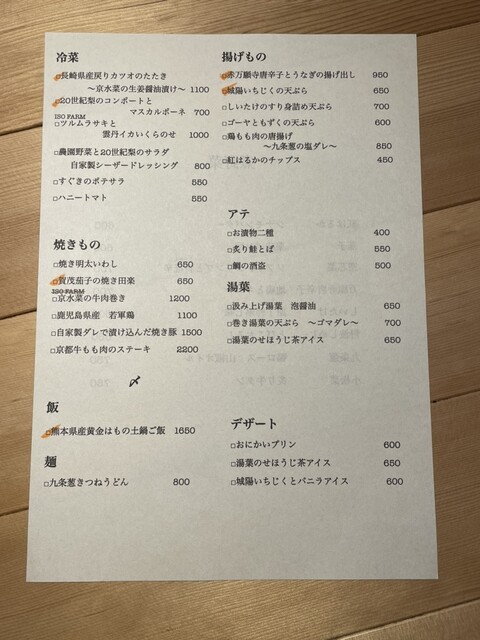 冷菜
□長崎県産戻りカツオのたたき
～京水菜の生姜醤油漬け～ 1100
□20世紀梨のコンポートと
マスカルポーネ 700
ISO FARM
□ツルムラサキと
雲丹イカいくらのせ 1000
□農園野菜と20世紀梨のサラダ
自家製シーザードレッシング 800
□すぐきのポテサラ 550
□ハニートマト 550
焼きもの
□焼き明太いわし 650
□賀茂茄子の焼き田楽 650
ISO FARM
□京水菜の牛肉巻き 1200
□鹿児島県産 若軍鶏 1100
□自家製ダレで漬け込んだ焼き豚 1500
□京都牛もも肉のステーキ 2200
〆
飯
□熊本県産黄金はもの土鍋ご飯 1650
麺
□九条葱きつねうどん 800
揚げもの
□赤万願寺唐辛子とうなぎの揚げ出し 980
□城陽いちじくの天ぷら 650
□しいたけのすり身詰め天ぷら 700
□ゴーヤともずくの天ぷら 600
□鶏もも肉の唐揚げ
～九条葱の塩ダレ～ 850
□紅はるかのチップス 450
アテ
□お漬物二種 400
□炙り鮭とば 550
□鯛の酒盗 500
湯葉
□汲み上げ湯葉 泡醤油 650
□巻き湯葉の天ぷら ～ゴマダレ～ 700
□湯葉のせほうじ茶アイス 650
デザート
□おにかいプリン 600
□湯葉のせほうじ茶アイス 650
□城陽いちじくとバニラアイス 600